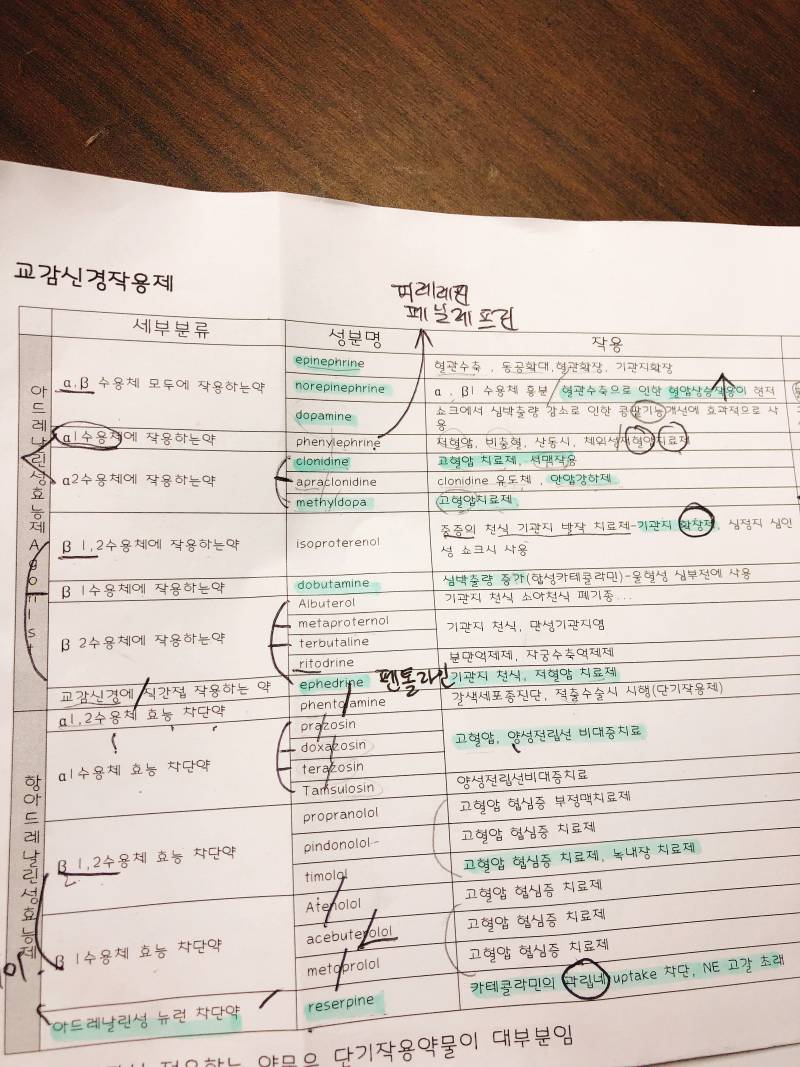 페닐레프린
교감신경작용제
세부분류 성분명 작용
아드레날린성효능제 Agonist
α,β 수용체 모두에 작용하는약
epinephrine 혈관수축 , 동공확대,혈관확장, 기관지확장
norepinephrine α , β1 수용체 흥분 혈관수축으로 인한 혈압상승작용이 현저
dopamine 쇼크에서 심박출량 감소로 인한 콩팥기능개선에 효과적으로 사
용
α1수용체에 작용하는약 phenylephrine 저혈압, 빈충혈, 산동시,
α2수용체에 작용하는약
clonidine 고혈압 치료제,
apraclonidine clonidine 유도체 , 안압강하제
methyldopa 고혈압치료제
β 1,2수용체에 작용하는약 isoproterenol 중증의 천식 기관지 발작 치료제-기관지 확장제, 심정지 심인
성 쇼크시 사용
β 1수용체에 작용하는약 dobutamine 심박출량 증가(합성카테콜라민)-울혈성 심부전에 사용
β 2수용체에 작용하는약
Albuterol 기관지 천식 소아천식 폐기종...
metaproternol
terbutaline
기관지 천식, 만성기관지염
ritodrine 분만억제제, 자궁수축억제제
교감신경에 직간접 작용하는 약 ephedrine 기관지 천식, 저혈압 치료제
펜톨라민
항아드레날린성효능제
α1,2수용체 효능 차단약 phentolamine 갈색세포종진단, 적출수술시 시행(단기작용제)
α1수용체 효능 차단약
prazosin
doxazosin
terazosin
고혈압, 양성전립선 비대증치료
Tamsulosin 양성전립선비대증치료
β 1,2수용체 효능 차단약
propranolol 고혈압 협심증 부정맥치료제
pindonolol 고혈압 협심증 치료제
timolol 고혈압 협심증 치료제, 녹내장 치료제
β 1수용체 효능 차단약
Atenolol 고혈압 협심증 치료제
acebuterolol 고혈압 협심증 치료제
metoprolol 고혈압 협심증 치료제
아드레날린성 뉴런 차단약 reserpine 카테콜라민의 과립내 uptake 차단, NE 고갈 초래
작용하는 약물은 단기작용약물이 대부분임